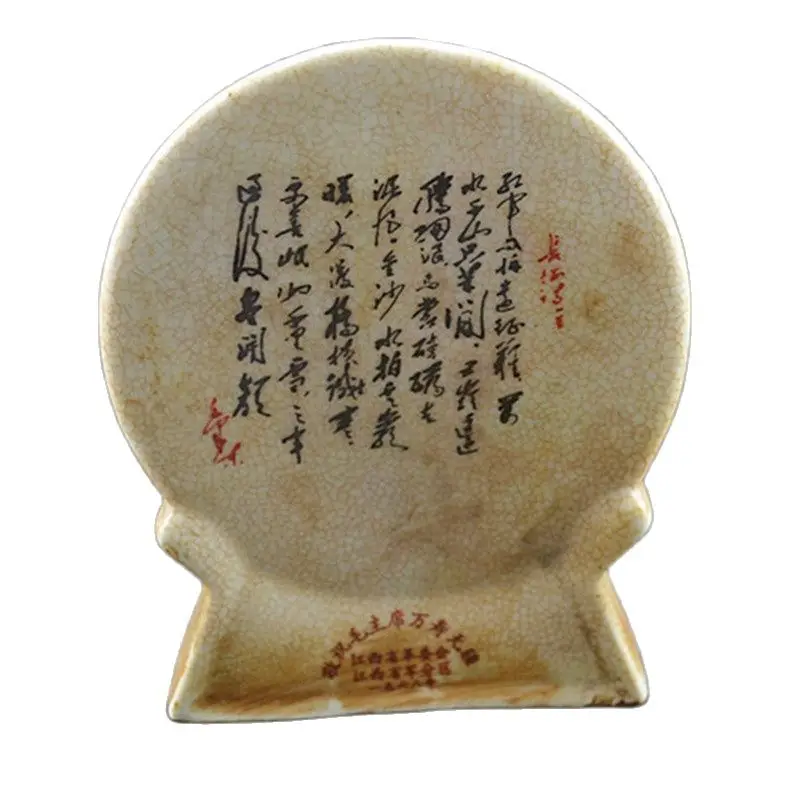 長征诗一首
红军不怕远征难万
水千山只等闲五岭逶
腾细浪乌蒙磅礴走
泥丸金沙水拍云崖
暖大渡桥横铁索寒
更喜岷山千里雪三军
过后尽开颜
毛泽东
敬祝毛主席万寿无疆
江西省革委会
江西省军分区
一九六八年